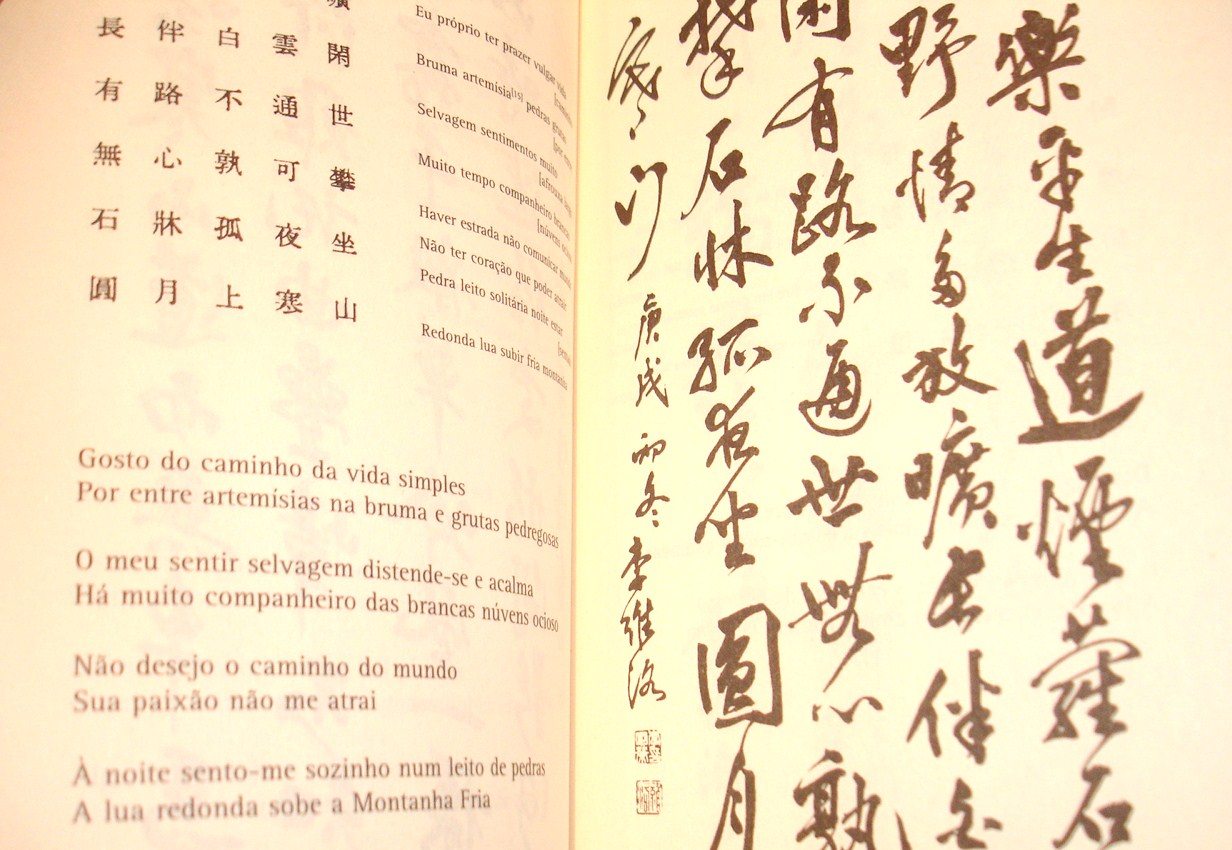 曠
長伴白雲閑
有路不通世
無心孰可攀
石牀孤夜坐
圓月上寒山
Eu próprio ter prazer vulgar vida
Bruma artemísia[15] pedras grutas
Selvagem sentimentos muito
Muito tempo companheiro brancas
[núvens
Haver estrada não comunicar mundo
Não ter coração que poder
Pedra leito solitária noite estar
Redonda lua subir fria montanha
Gosto do caminho da vida simples
Por entre artemísias na bruma e grutas pedregosas
O meu sentir selvagem distende-se e acalma
Há muito companheiro das brancas núvens ocioso
Não desejo o caminho do mundo
Sua paixão não me atrai
À noite sento-me sozinho num leito de pedras
A lua redonda sobe a Montanha Fria
樂平生道煙蘿石
野情多放曠長伴白
閑有路不通世無心孰
攀石牀孤夜坐圓月
寒山 庚戌初冬李維洛